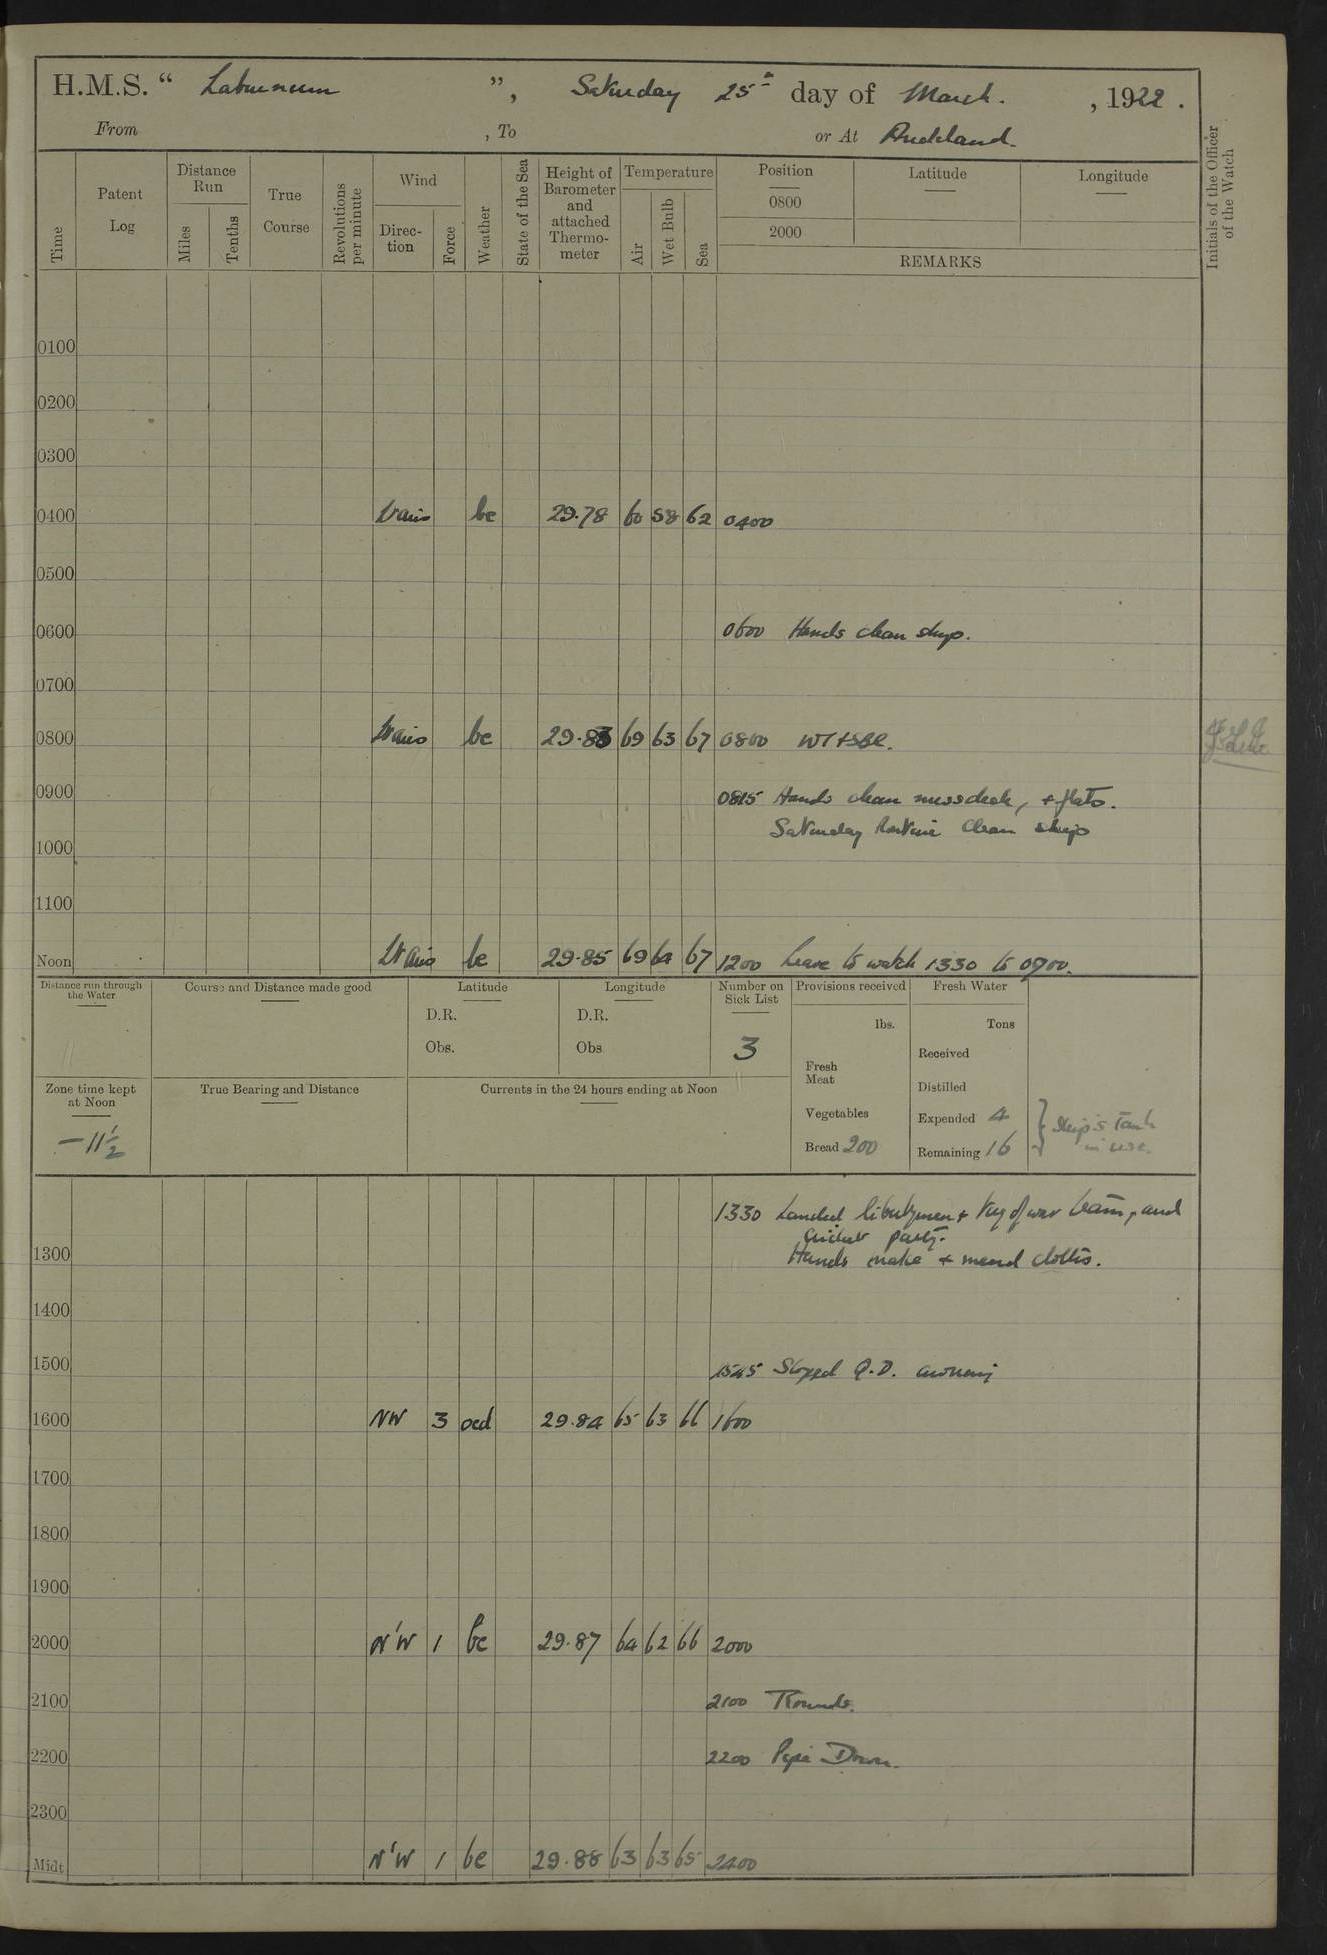 H.M.S. " Laburnum ", Saturday 25th day of March. , 1922 .
From , To or At Auckland.
Time
Patent Log
Distance Run
Miles
Tenths
True Course
Revolutions per minute
Wind
Direc- tion
Force
Weather
State of the Sea
Height of Barometer and attached Thermo- meter
Temperature
Air
Wet Bulb
Sea
Position
0800
2000
Latitude
Longitude
REMARKS
Initials of the Officer of the Watch
0100
0200
0300
0400 bc 29.78 60 58 62 0400
0500
0600 0600 Hands clean ship.
0700
0800 bc 29.83 69 63 67 0800
0900 0815 Hands clean messdeck, + flats.
Saturday Routine Clean ship
1000
1100
Noon bc 29.85 69 64 67 1200 Leave to watch 1330 to 0700.
Distance run through the Water
Course and Distance made good
Latitude
D.R.
Obs.
Longitude
D.R.
Obs
Number on Sick List
3
Provisions received
lbs.
Fresh Meat
Vegetables
Bread 200
Fresh Water
Tons
Received
Distilled
Expended 4
Remaining 16
} Ship's Tank
in use.
Zone time kept at Noon
-11½
True Bearing and Distance
Currents in the 24 hours ending at Noon
1330 Landed libertymen + Tug of war team, and
cricket party.
1300 Hands make + mend clothes.
1400
1500 1545 Sloped Q.D. awning
1600 NW 3 ocd 29.84 65 63 66 1600
1700
1800
1900
2000 N'W 1 bc 29.87 64 62 66 2000
2100 2100 Rounds.
2200 2200 Pipe Down.
2300
Midt N'W 1 bc 29.88 63 63 65 2400